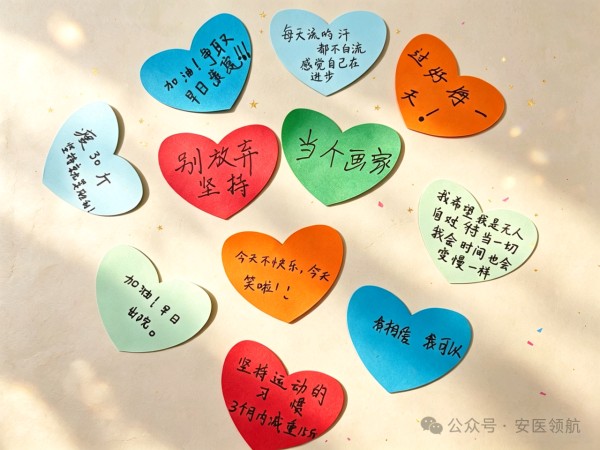 加油！争取
早日康复!!!
每天流的汗
都不白流
感觉自己在
进步
过好每一
天！
瘦30斤
坚持就是胜利！
别放弃
坚持
当个画家
我希望我是无人
自对待当一切
我会时间也会
变慢一样
加油！早日
出院。
今天不快乐，今天
笑啦！！
有相爱 我可以
坚持运动的
习惯
3个月内减重15斤
公众号·安医领航